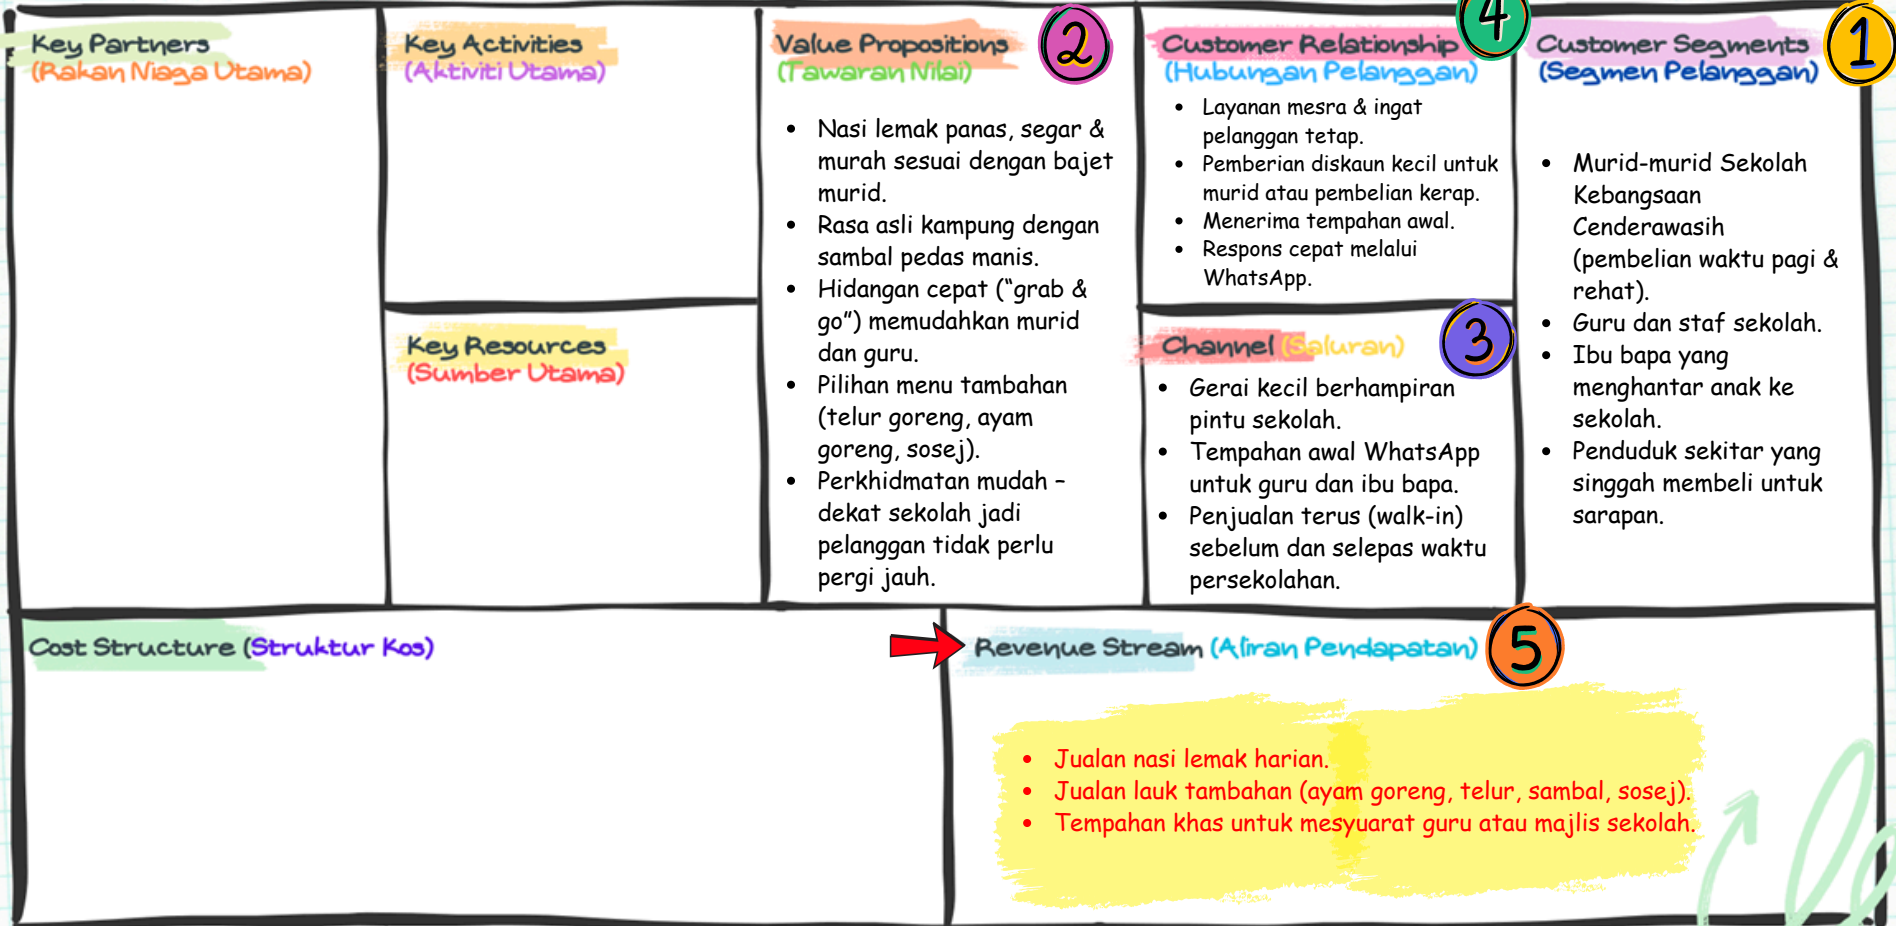 Key Partners
(Rakan Niaga Utama)
Key Activities
(Aktiviti Utama)
Key Resources
(Sumber Utama)
Value Propositions
(Tawaran Nilai)
2
• Nasi lemak panas, segar &
murah sesuai dengan bajet
murid.
• Rasa asli kampung dengan
sambal pedas manis.
• Hidangan cepat (“grab &
go”) memudahkan murid
dan guru.
• Pilihan menu tambahan
(telur goreng, ayam
goreng, sosej).
• Perkhidmatan mudah –
dekat sekolah jadi
pelanggan tidak perlu
pergi jauh.
Customer Relationship
(Hubungan Pelanggan)
4
• Layanan mesra & ingat
pelanggan tetap.
• Pemberian diskaun kecil untuk
murid atau pembelian kerap.
• Menerima tempahan awal.
• Respons cepat melalui
WhatsApp.
Channel (Saluran)
3
• Gerai kecil berhampiran
pintu sekolah.
• Tempahan awal WhatsApp
untuk guru dan ibu bapa.
• Penjualan terus (walk-in)
sebelum dan selepas waktu
persekolahan.
Customer Segments
(Segmen Pelanggan)
1
• Murid-murid Sekolah
Kebangsaan
Cenderawasih
(pembelian waktu pagi &
rehat).
• Guru dan staf sekolah.
• Ibu bapa yang
menghantar anak ke
sekolah.
• Penduduk sekitar yang
singgah membeli untuk
sarapan.
Cost Structure (Struktur Kos)
Revenue Stream (Aliran Pendapatan)
5
• Jualan nasi lemak harian.
• Jualan lauk tambahan (ayam goreng, telur, sambal, sosej).
• Tempahan khas untuk mesyuarat guru atau majlis sekolah.